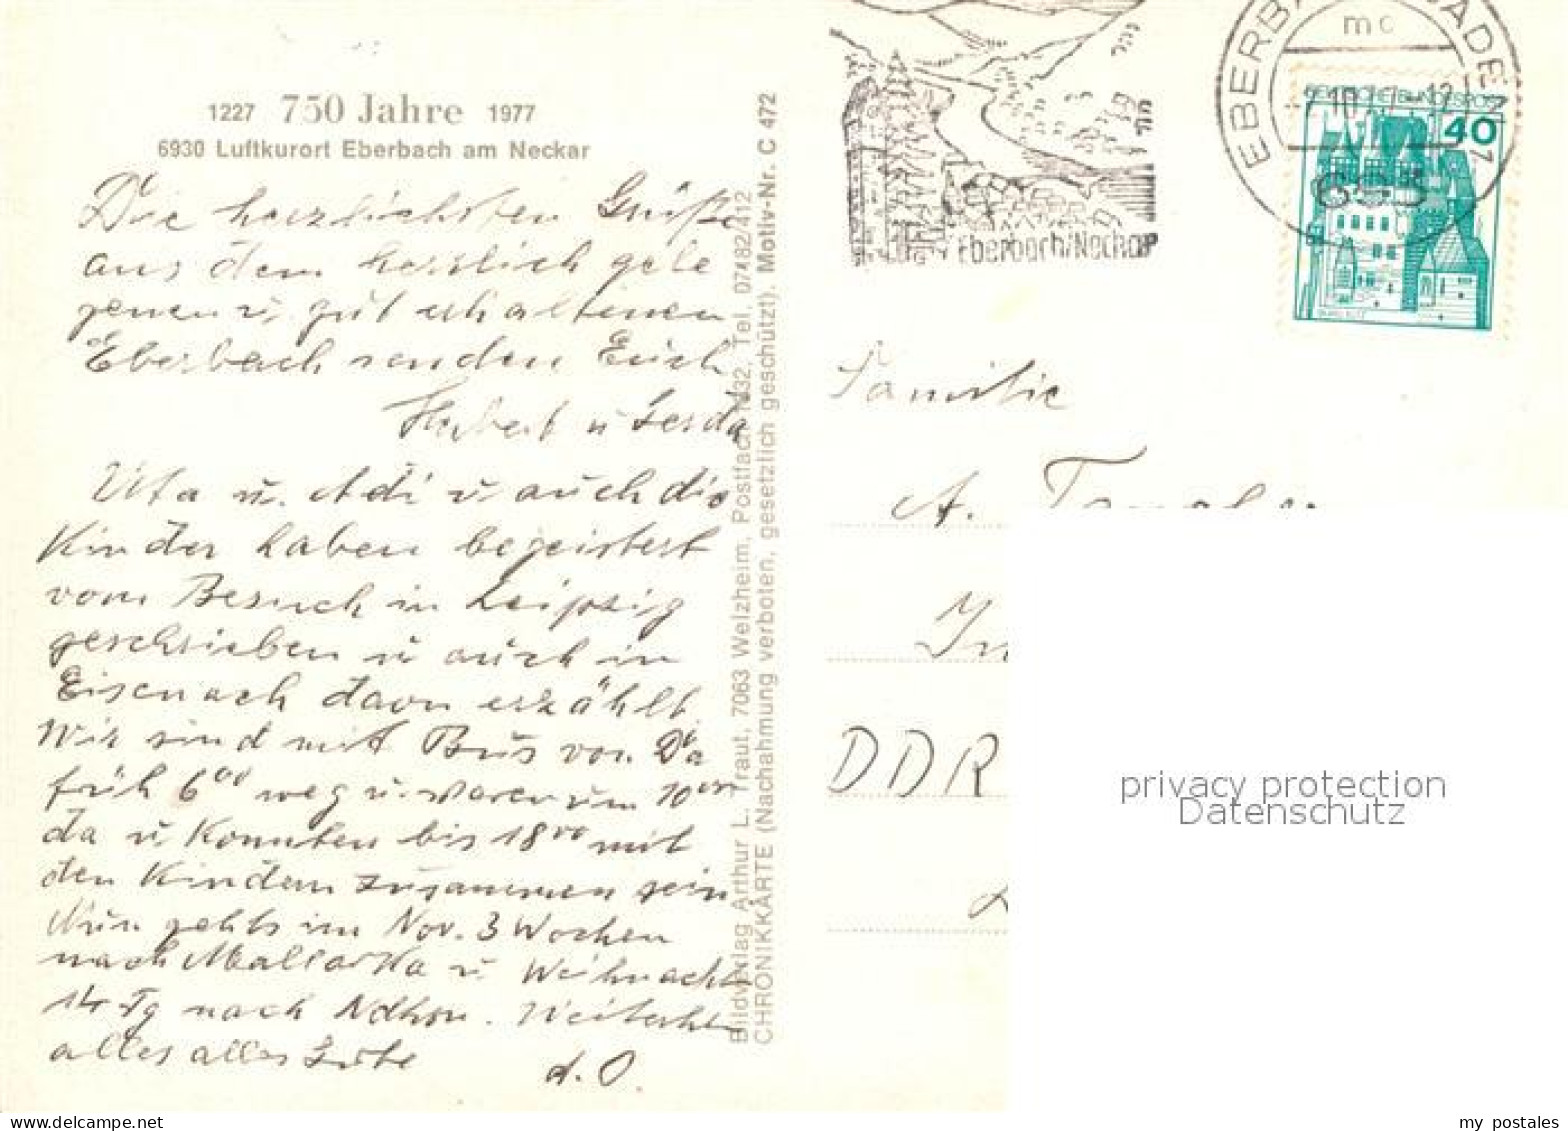 1227 750 Jahre 1977
6930 Luftkurort Eberbach am Neckar
Die herzlichsten Grüße
aus dem herrlich gele
genen u. gut erhaltenen
Eberbach senden Euch
Hubert u Gerda
Uta u. Adi u auch die
Kinder haben begeistert
vom Besuch in Leipzig
geschrieben u auch in
Eisenach davon erzählt
Wir sind mit Bus von Da
früh 6⁰⁰ weg u. waren um 10⁰⁰
da u. konnten bis 18⁰⁰ mit
den Kindern zusammen sein
Nun gehts im Nov. 3 Wochen
nach Mallorka u Weihnacht
14 Tg nach Ndhsn. Weiterhin
alles alles Gute
d. O.
Bildverlag Arthur L. Traut, 7063 Welzheim, Postfach 1432, Tel. 07182/412
CHRONIKKARTE (Nachahmung verboten, gesetzlich geschützt). Motiv-Nr. C 472
Eberbach/Neckar
EBERBACH, BADEN 1
mc
10
-12
693
DEUTSCHE BUNDESPOST
40
BURG ELTZ
Familie
A.
DDR
privacy protection
Datenschutz
my postales